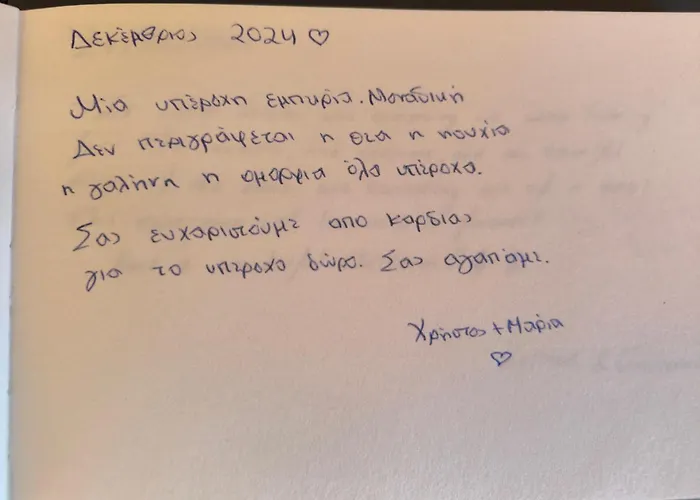 Δεκέμβριος 2024 ♡
Μια υπέροχη εμπιρία. Μοναδική
Δεν περιγράφεται η θεα η ησυχία
η γαλήνη η ομορφια όλα υπέροχα.
Σας ευχαριστούμε απο καρδιας
για το υπέροχο δώρο. Σας αγαπάμε.
Χρήστος + Μαρία
♡